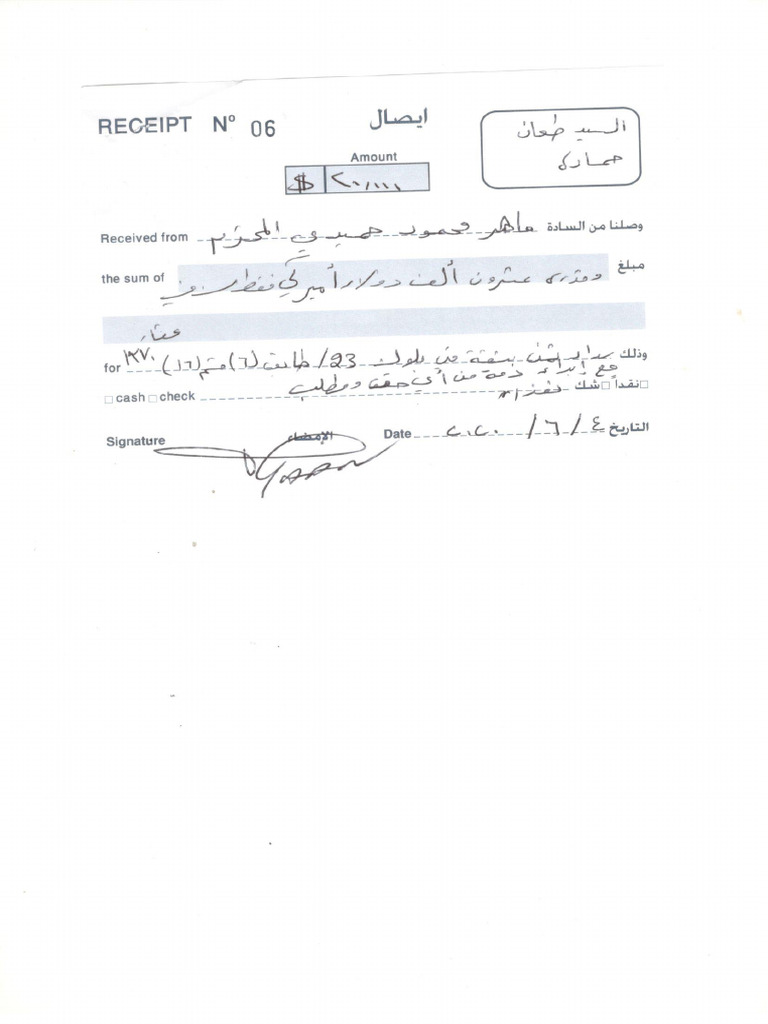 RECEIPT Nº 06 ايصال
السيد طعان
حماده
Amount
$ ٢٠,٠٠٠
Received from ماهر محمود حميدي المحترم وصلنا من السادة
the sum of وقدره عشرون ألف دولار أميركي فقط مبلغ
عقار
for وذلك سداد ثمن شقة في بلوك 23/ طابق (٦) قسم (١٦)
مع إبراء ذمة من أي حق ومطلب
cash check نقداً شك
Signature الإمضاء Date ٢٠٢٠ / ٦ / ٤ التاريخ